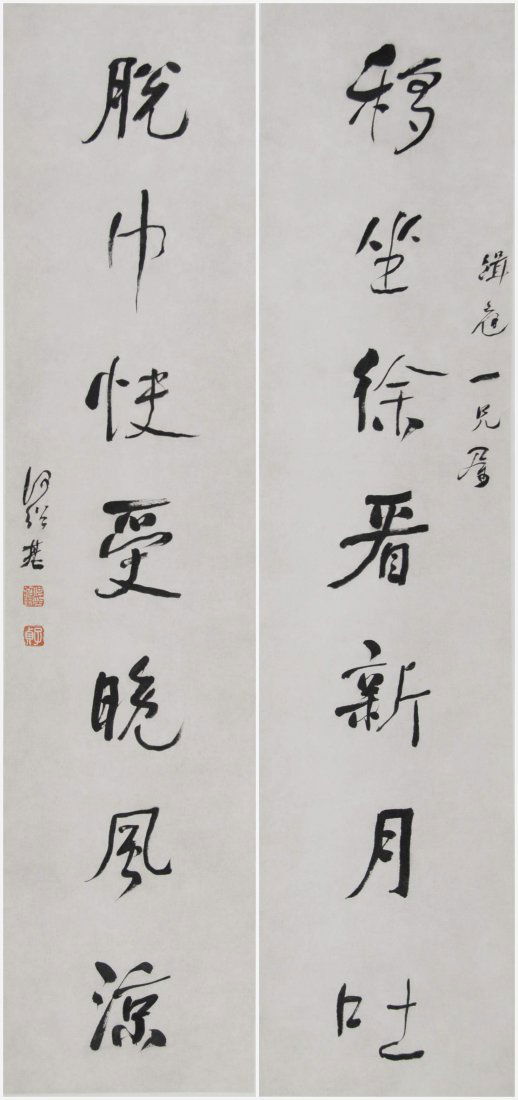 緝庭一兄屬
移坐徐看新月吐
脫巾快受晚風涼
何紹基
子貞